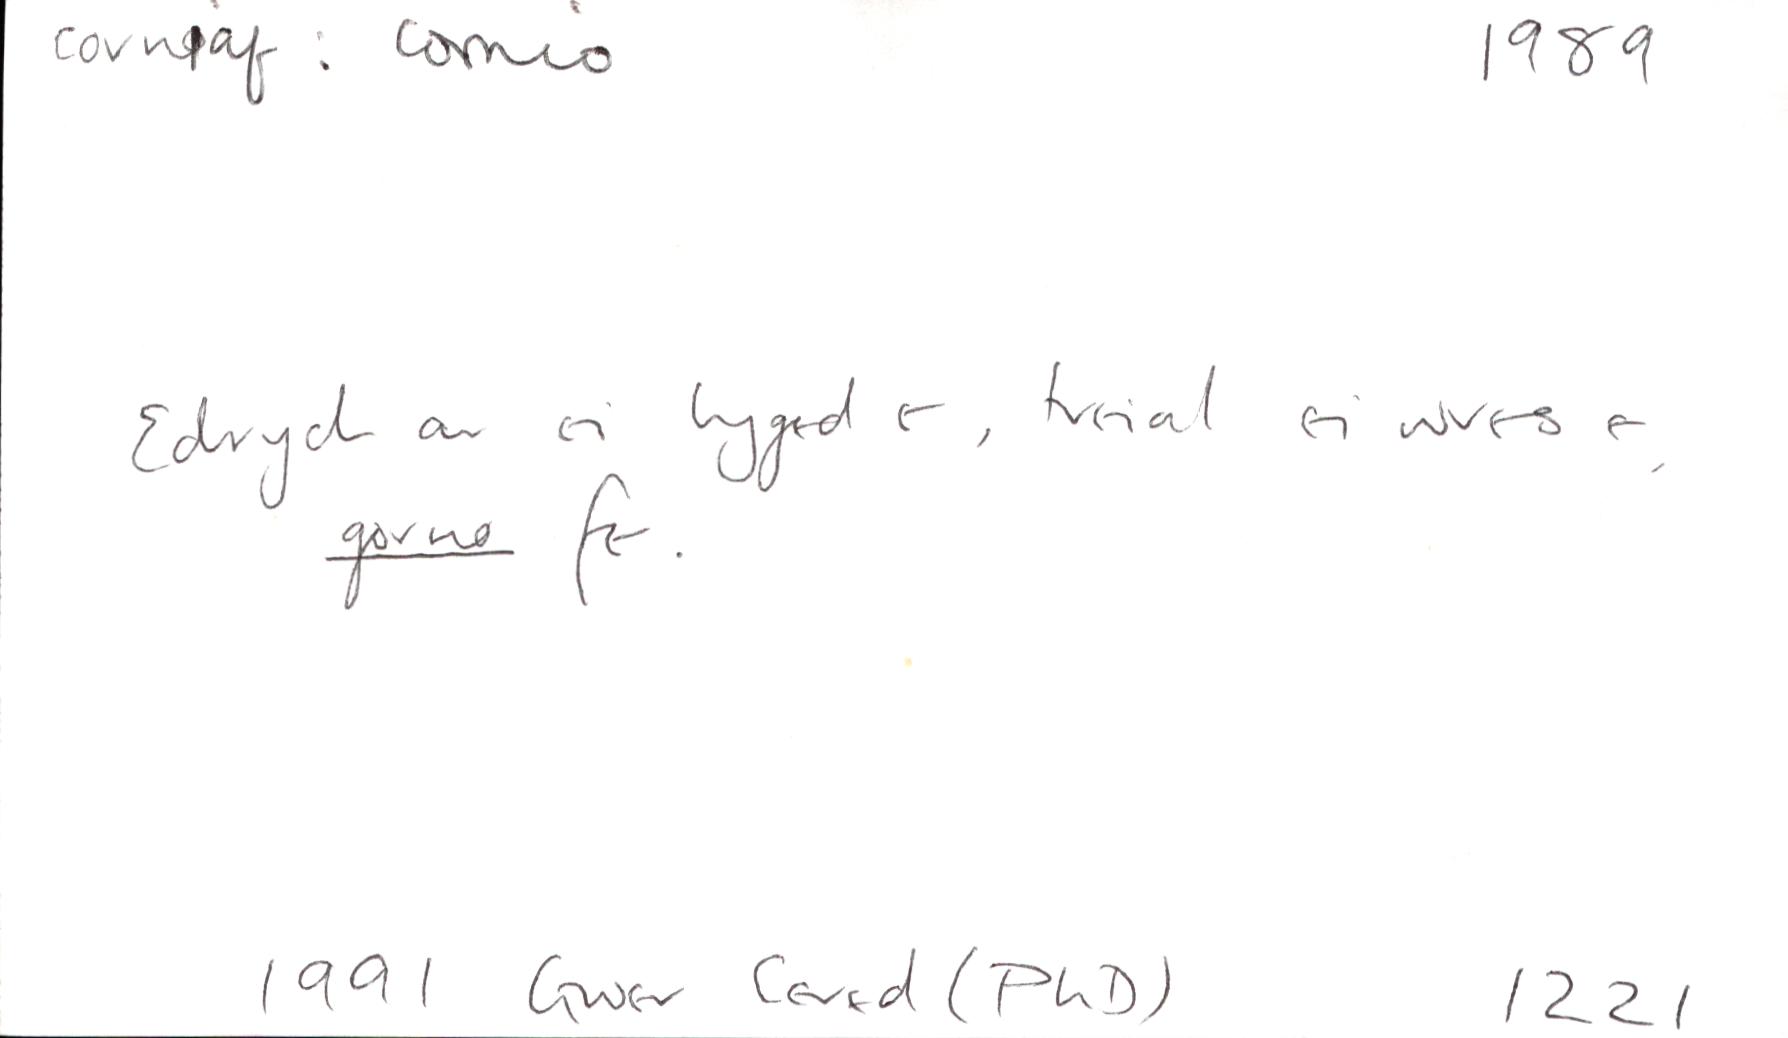 corniaf : cornio 1989
Edrych ar ei lyged e, treial ei wres e,
gorno fe.
1991 Gwer Cered (PhD) 1221